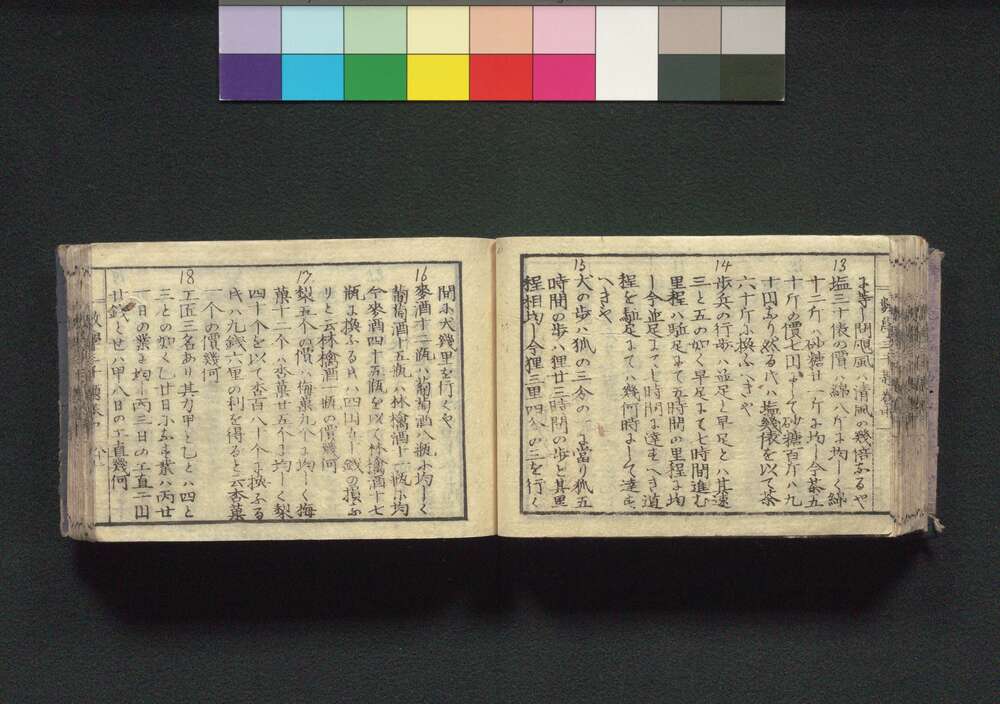 問颶風ハ清風の幾倍なるや
13
塩三十俵の價ハ綿八斤に均しく綿
十二斤ハ砂糖廿 斤に均し今茶五
十斤の價七円 して砂糖百斤ハ九
十円なり然る氏ハ塩幾俵を以て茶
六十斤に換ふへきや
14
歩兵の行歩ハ並足と早足とハ其速
三と五の如く早足にて七時間進む
里程ハ駈足にて五時間の里程に均
し今並足にて七時間に達すへき道
程を駈足にてハ幾何時にして達す
へきや
15
犬の歩ハ狐の三分の に當り狐五
時間の歩ハ狸廿三時間の歩と其里
程相均し今狸三里四分の三を行く
間に犬幾里を行くや
16
麥酒十二瓶ハ葡萄酒八瓶に均しく
葡萄酒十五瓶ハ林檎酒十一瓶に均
今麥酒四十五瓶を以て林檎酒十七
瓶に換ふる氏ハ四円 銭の損な
りと云林檎酒一瓶の價幾何
17
梨五个の價ハ梅菓九个に均しく梅
菓十二个ハ杏菓廿五个に均しく梨
四十个を以て杏百八十个に換ふる
氏ハ九銭六厘の利を得ると云杏菓
一个の價幾何
18
工匠三名あり其力甲と乙とハ四と
三との如くし廿日になす業ハ丙廿
一日の業に均し丙三日の工直二円
廿銭とせハ甲八日の工直幾何